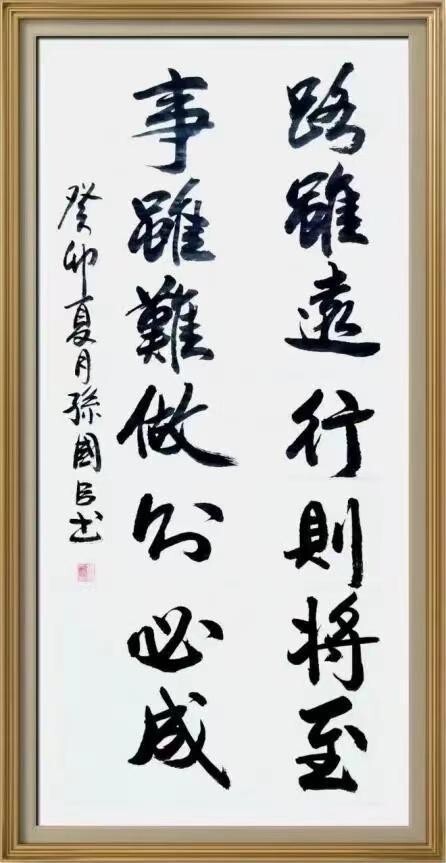 路雖遠行則將至
事雖難做则必成
癸卯夏月孫國臣书